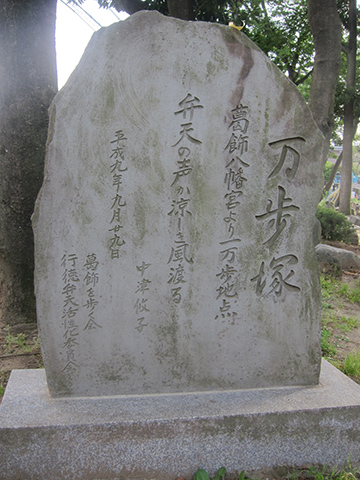 万歩塚
葛飾八幡宮より一万歩地点
弁天の声か涼しき風渡る
中津攸子
平成九年九月廿九日
葛飾を歩く会
行徳弁天活性化委員会